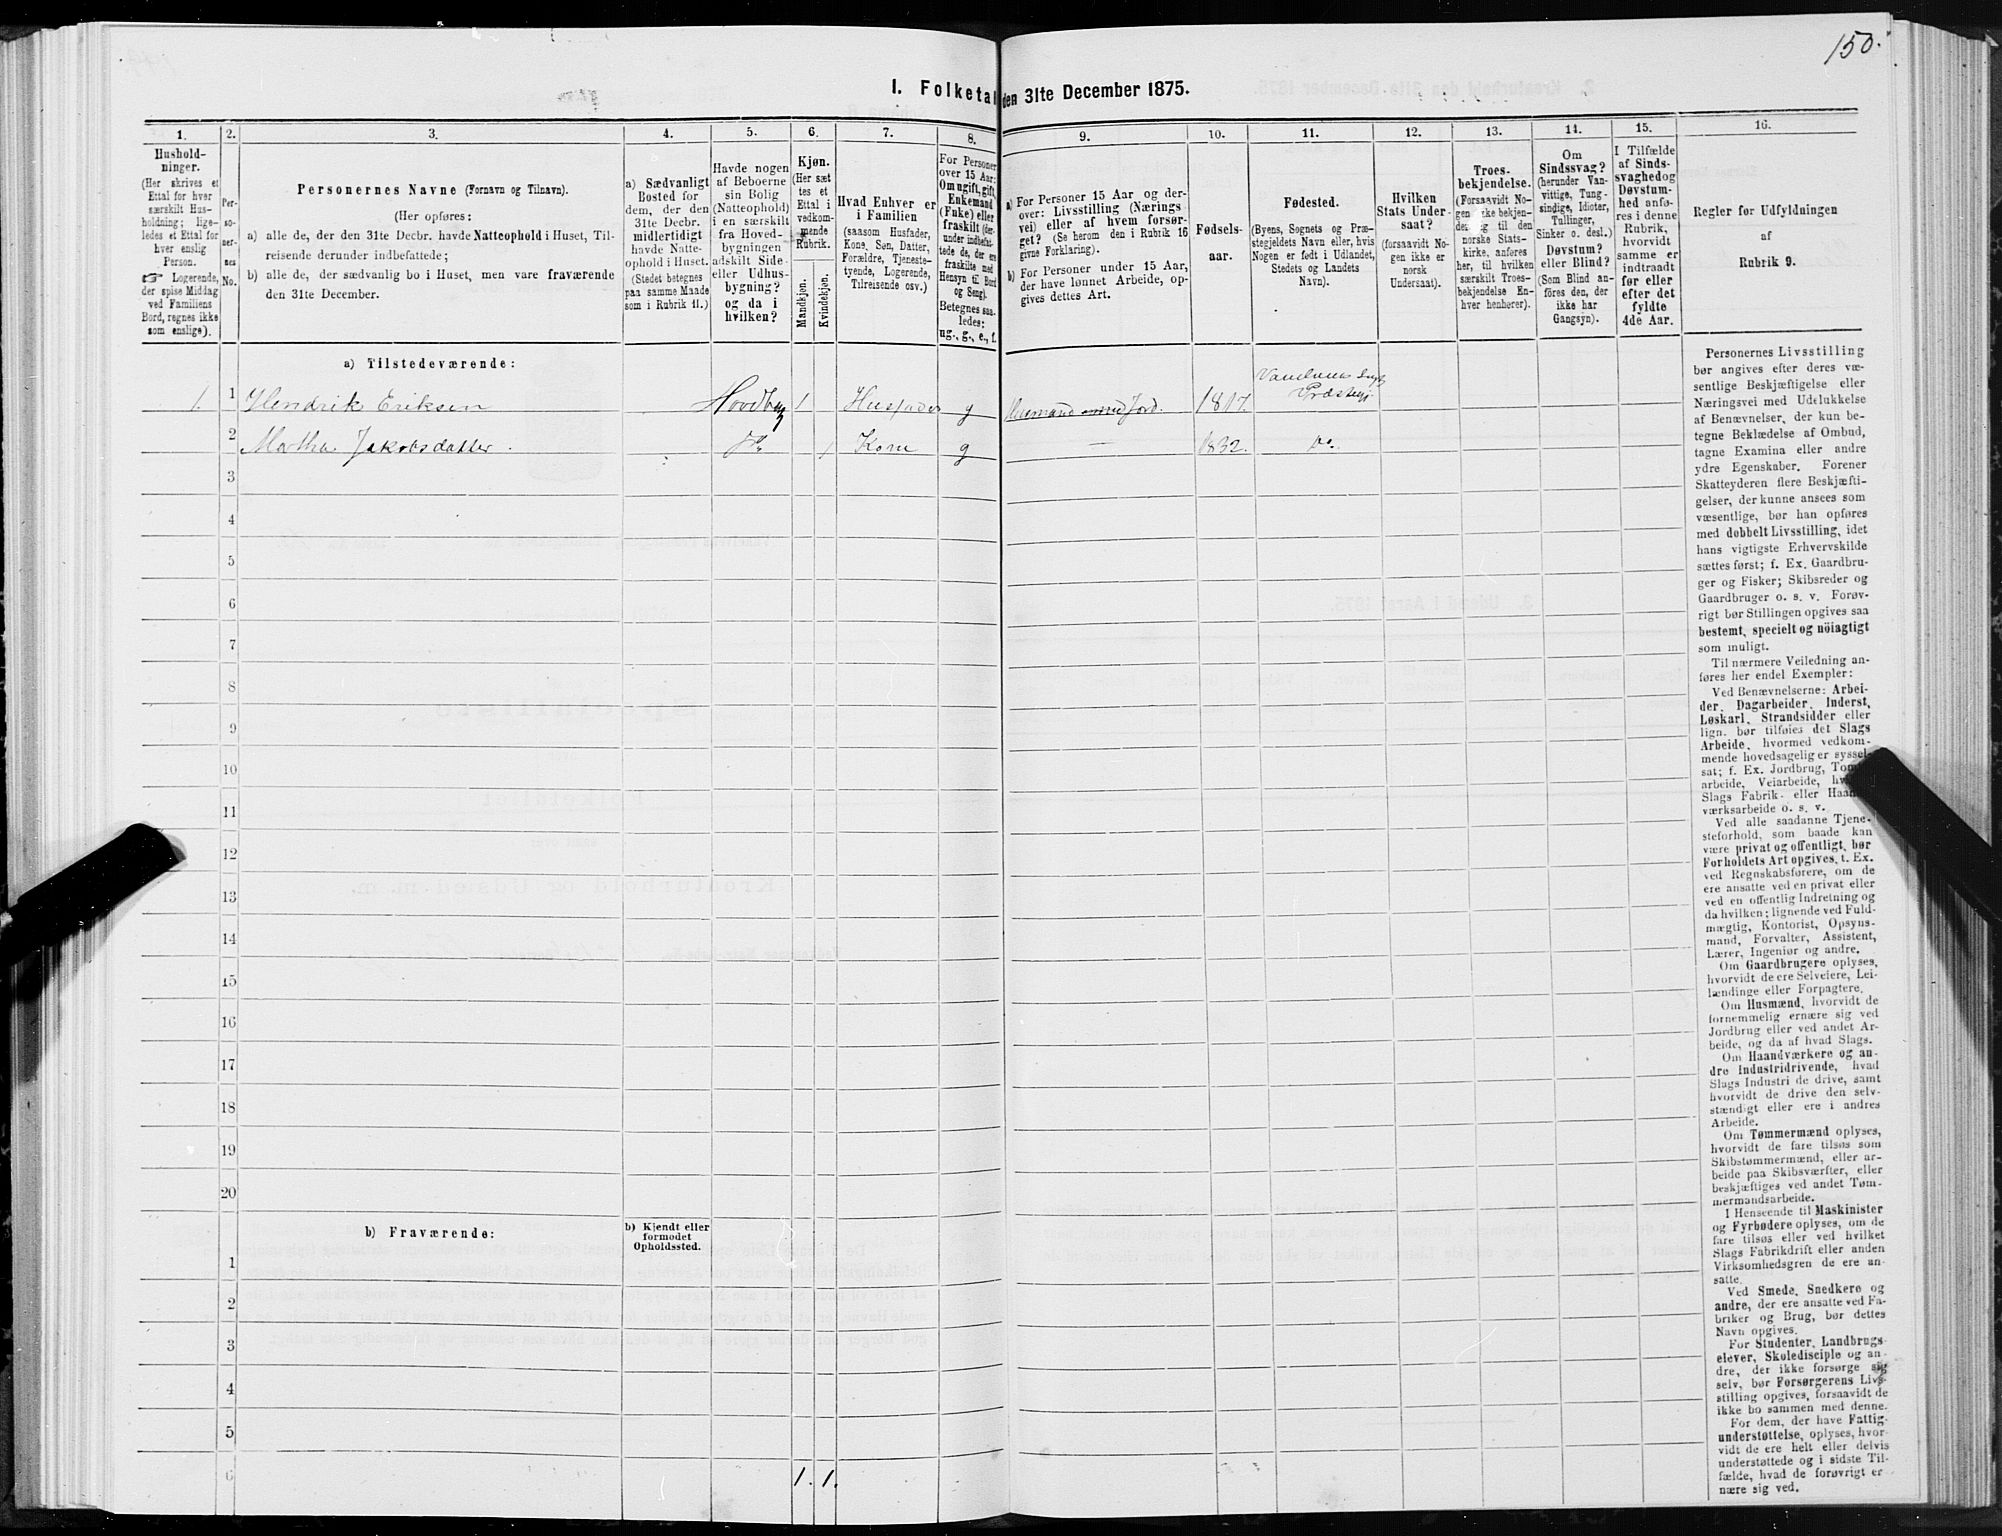 150.
I. Folketal den 31te December 1875.
1.
Hushold-
ninger.
(Her skrives et
Ettal for hver
særskilt Hus-
holdning; lige-
ledes et Ettal for
hver enslig
Person.
☞ Logerende,
der spise Middag
ved Familiens
Bord, regnes ikke
som enslige).
2.
Per-
so-
ner-
nes
No.
3.
Personernes Navne (Fornavn og Tilnavn).
(Her opføres:
a) alle de, der den 31te Decbr. havde Natteophold i Huset, Til-
reisende derunder indbefattede;
b) alle de, der sædvanlig bo i Huset, men vare fraværende
den 31te December.
4.
a) Sædvanligt
Bosted for
dem, der den
31te Decbr.
midlertidigt
havde Natte-
ophold i Huset.
(Stedet betegnes
paa samme Maade
som i Rubrik 11.)
5.
Havde nogen
af Beboerne
sin Bolig
(Natteophold)
i en særskilt
fra Hoved-
bygningen
adskilt Side-
eller Udhus-
bygning?
og da i
hvilken?
6.
Kjøn.
(Her sæt
tes et
Ettal i
vedkom-
mende
Rubrik.
Mandkjøn.
Kvindekjøn.
7.
Hvad Enhver er
i Familien
(saasom Husfader,
Kone, Søn, Datter,
Forældre, Tjeneste-
tyende, Logerende,
Tilreisende osv.)
8.
For Personer
over 15 Aar:
Om ugift, gift,
Enkemand
(Enke) eller
fraskilt (der-
under indbefat-
tede de, der ere
fraskilte med
Hensyn til Bord
og Seng).
Betegnes saa-
ledes:
ug., g., e., f.
9.
a) For Personer 15 Aar og der-
over: Livsstilling (Nærings-
vei) eller af hvem forsør-
get? (Se herom den i Rubrik 16
givne Forklaring).
b) For Personer under 15 Aar,
der have lønnet Arbeide, op-
gives dettes Art.
10.
Fødsels-
aar.
11.
Fødested.
(Byens, Sognets og Præ-
stegjeldets Navn eller, hvis
Nogen er født i Udlandet,
Stedets og Landets
Navn).
12.
Hvilken
Stats Under-
saat?
(forsaavidt No-
gen ikke er
norsk
Undersaat).
13.
Troes-
bekjendelse.
(Forsaavidt No-
gen ikke bekjen-
der sig til den
norske Stats-
kirke, anføres
her, til hvilken
særskilt Troes-
bekjendelse En-
hver henhører).
14.
Om
Sindssvag?
(herunder Van-
vittige, Tung-
sindige, Idioter,
Tullinger,
Sinker o. desl.)
Døvstum?
eller Blind?
(Som Blind an-
føres den, der
ikke har
Gangsyn).
15.
I Tilfælde
af Sinds-
svaghed og
Døvstum-
hed anfø-
res i denne
Rubrik,
hvorvidt
samme er
indtraadt
før eller
efter det
fyldte
4de Aar.
16.
Regler for Udfyldningen
af
Rubrik 9.
a) Tilstedeværende:
1. 1 Hendrik Eriksen Hovedbyg 1 Husfader g Husmand med Jord. 1817. Præstegj.
2 Martha Jakobsdatter. Do 1 Kone g — 1832. Do.
3
4
5
6
7
8
9
10
11
12
13
14
15
16
17
18
19
20
b) Fraværende:
b) Kjendt eller
formodet
Opholdssted.
1
2
3
4
5
6
1. 1.
Personernes Livsstilling
bør angives efter deres væ-
sentlige Beskjæftigelse eller
Næringsvei med Udelukkelse
af Benævnelser, der kun be-
tegne Beklædelse af Ombud,
tagne Examina eller andre
ydre Egenskaber. Forener
Skatteyderen flere Beskjæfti-
gelser, der kunne ansees som
væsentlige, bør han opføres
med dobbelt Livsstilling, idet
hans vigtigste Erhvervskilde
sættes først; f. Ex. Gaardbru-
ger og Fisker; Skibsreder og
Gaardbruger o. s. v. Forøv-
rigt bør Stillingen opgives saa
bestemt, specielt og nöiagtigt
som muligt.
Til nærmere Veiledning an-
føres her endel Exempler:
Ved Benævnelserne: Arbei-
der, Dagarbeider, Inderst,
Løskarl, Strandsidder eller
lign. bør tilføies det Slags
Arbeide, hvormed vedkom-
mende hovedsagelig er syssel-
sat; f. Ex. Jordbrug, Tom-
arbeide, Veiarbeide,
Slags Fabrik- eller Haand-
værksarbeide o. s. v.
Ved alle saadanne Tjene-
steforhold, som baade kan
være privat og offentligt, bør
Forholdets Art opgives, t. Ex.
ved Regnskabsførere, om de
ere ansatte ved en privat eller
ved en offentlig Indretning og
da hvilken; lignende ved Fuld-
mægtig, Kontorist, Opsyns-
mand, Forvalter, Assistent,
Lærer, Ingeniør og andre.
Om Gaardbrugere oplyses,
hvorvidt de ere Selveiere, Lei-
lændinge eller Forpagtere.
Om Husmænd, hvorvidt de
fornemmelig ernære sig ved
Jordbrug eller ved andet Ar-
beide, og da af hvad Slags.
Om Haandværkere og an-
dre Industridrivende, hvad
Slags Industri de drive, samt
hvorvidt de drive den selv-
stændigt eller ere i andres
Arbeide.
Om Tømmermænd oplyses,
hvorvidt de fare tilsøs som
Skibstømmermænd, eller ar-
beide paa Skibsværfter, eller
beskjæftiges ved andet Tøm-
mermandsarbeide.
I Henseende til Maskinister
og Fyrbødere oplyses, om de
fare tilsøs eller ved hvilket
Slags Fabrikdrift eller anden
Virksomhedsgren de ere an-
satte.
Ved Smede, Snedkere og
andre, der ere ansatte ved Fa-
briker og Brug, bør dettes
Navn opgives.
For Studenter, Landbrugs-
elever, Skoledisciple og an-
dre, der ikke forsørge sig
selv, bør Forsørgerens Livs-
stilling opgives, forsaavidt de
ikke bo sammen med denne.
For dem, der have Fattig-
understøttelse, oplyses, hvor-
vidt de ere helt eller delvis
understøttede og i sidste Til-
fælde, hvad de forøvrigt er-
nære sig ved.